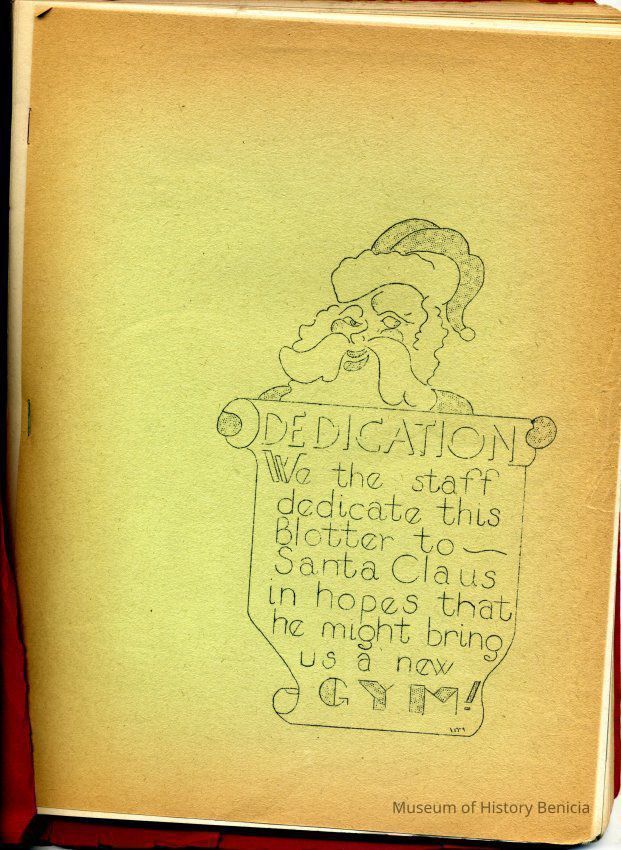 DEDICATION
We the staff
dedicate this
Blotter to
Santa Claus
in hopes that
he might bring
us a new
GYM!
Museum of History Benicia